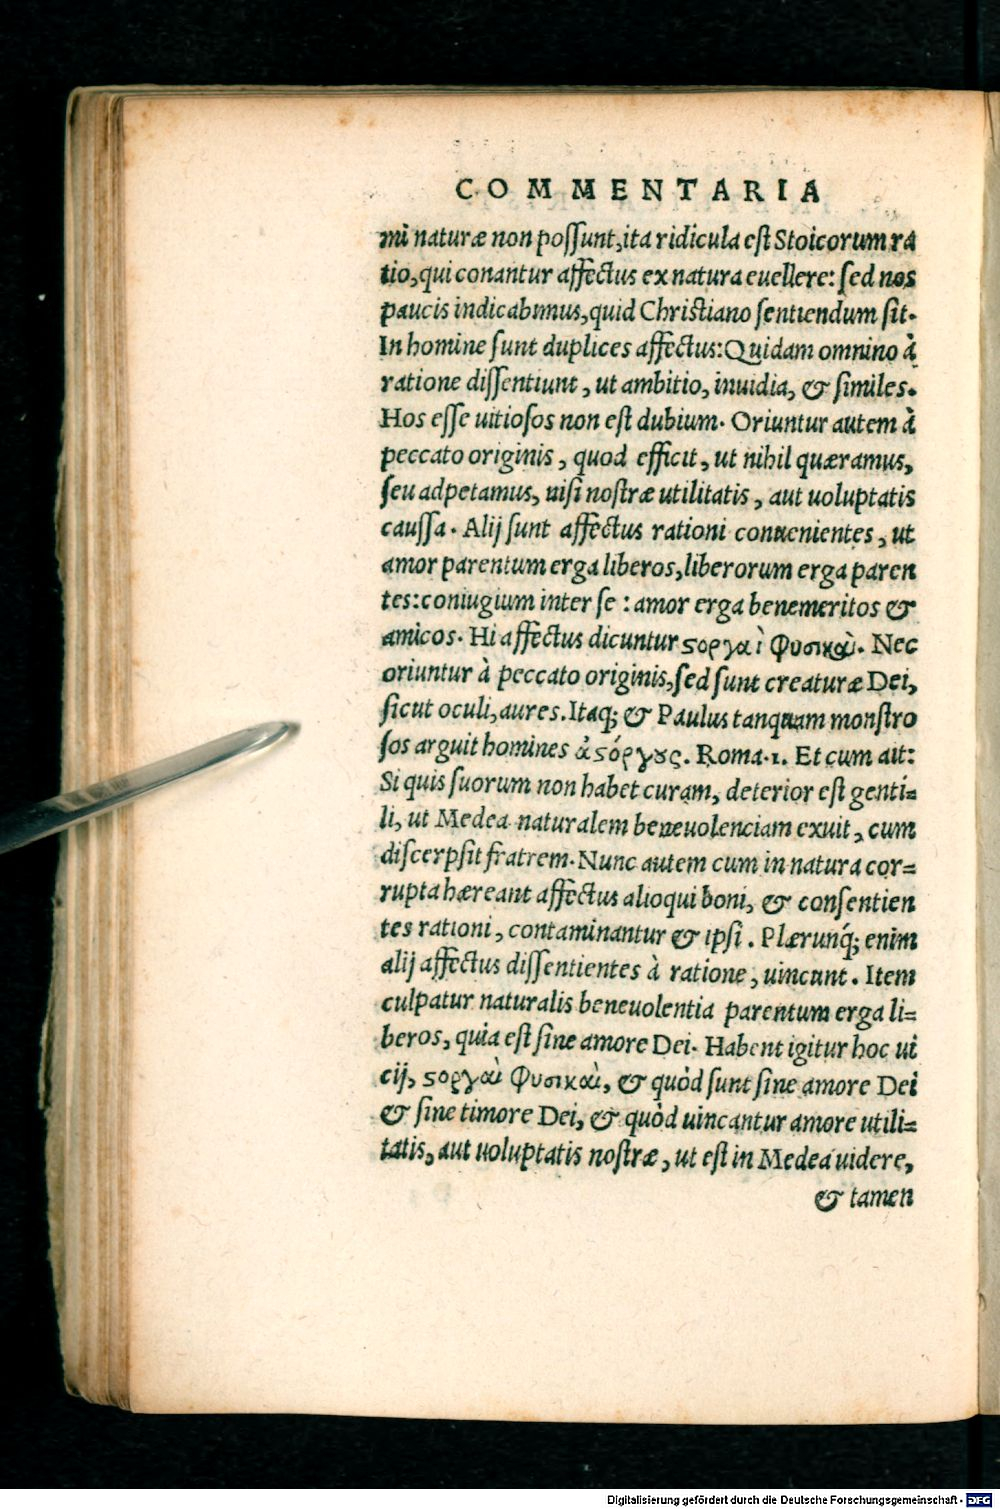 COMMENTARIA
mi naturæ non possunt, ita ridicula est Stoicorum ra
tio, qui conantur affectus ex natura euellere: sed nos
paucis indicabimus, quid Christiano sentiendum sit.
In homine sunt duplices affectus: Quidam omnino à
ratione dissentiunt, ut ambitio, inuidia, & similes.
Hos esse uitiosos non est dubium. Oriuntur autem à
peccato originis, quod efficit, ut nihil quæramus,
seu adpetamus, nisi nostræ utilitatis, aut uoluptatis
caussa. Alij sunt affectus rationi conuenientes, ut
amor parentum erga liberos, liberorum erga paren
tes: coniugium inter se: amor erga benemeritos &
amicos. Hi affectus dicuntur ϛοργαὶ φυσικαὶ. Nec
oriuntur à peccato originis, sed sunt creaturæ Dei,
sicut oculi, aures. Itaq; & Paulus tanquam monstro
sos arguit homines ἀϛόργους. Roma.1. Et cum ait:
Si quis suorum non habet curam, deterior est genti=
li, ut Medea naturalem beneuolenciam exuit, cum
discerpsit fratrem. Nunc autem cum in natura cor=
rupta hæreant affectus alioqui boni, & consentien
tes rationi, contaminantur & ipsi. Plærunq́; enim
alij affectus dissentientes à ratione, uincunt. Item
culpatur naturalis beneuolentia parentum erga li=
beros, quia est sine amore Dei. Habent igitur hoc ui
cij, ϛοργαὶ φυσικαὶ, & quòd sunt sine amore Dei
& sine timore Dei, & quòd uincantur amore utili=
tatis, aut uoluptatis nostræ, ut est in Medea uidere,
& tamen
Digitalisierung gefördert durch die Deutsche Forschungsgemeinschaft - DFG